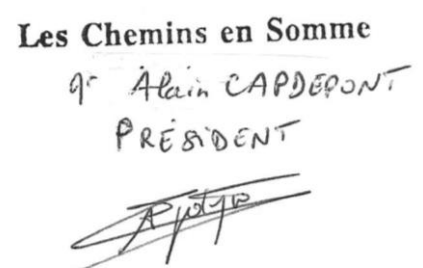 Les Chemins en Somme
Alain CAPDEPONT
PRÉSIDENT